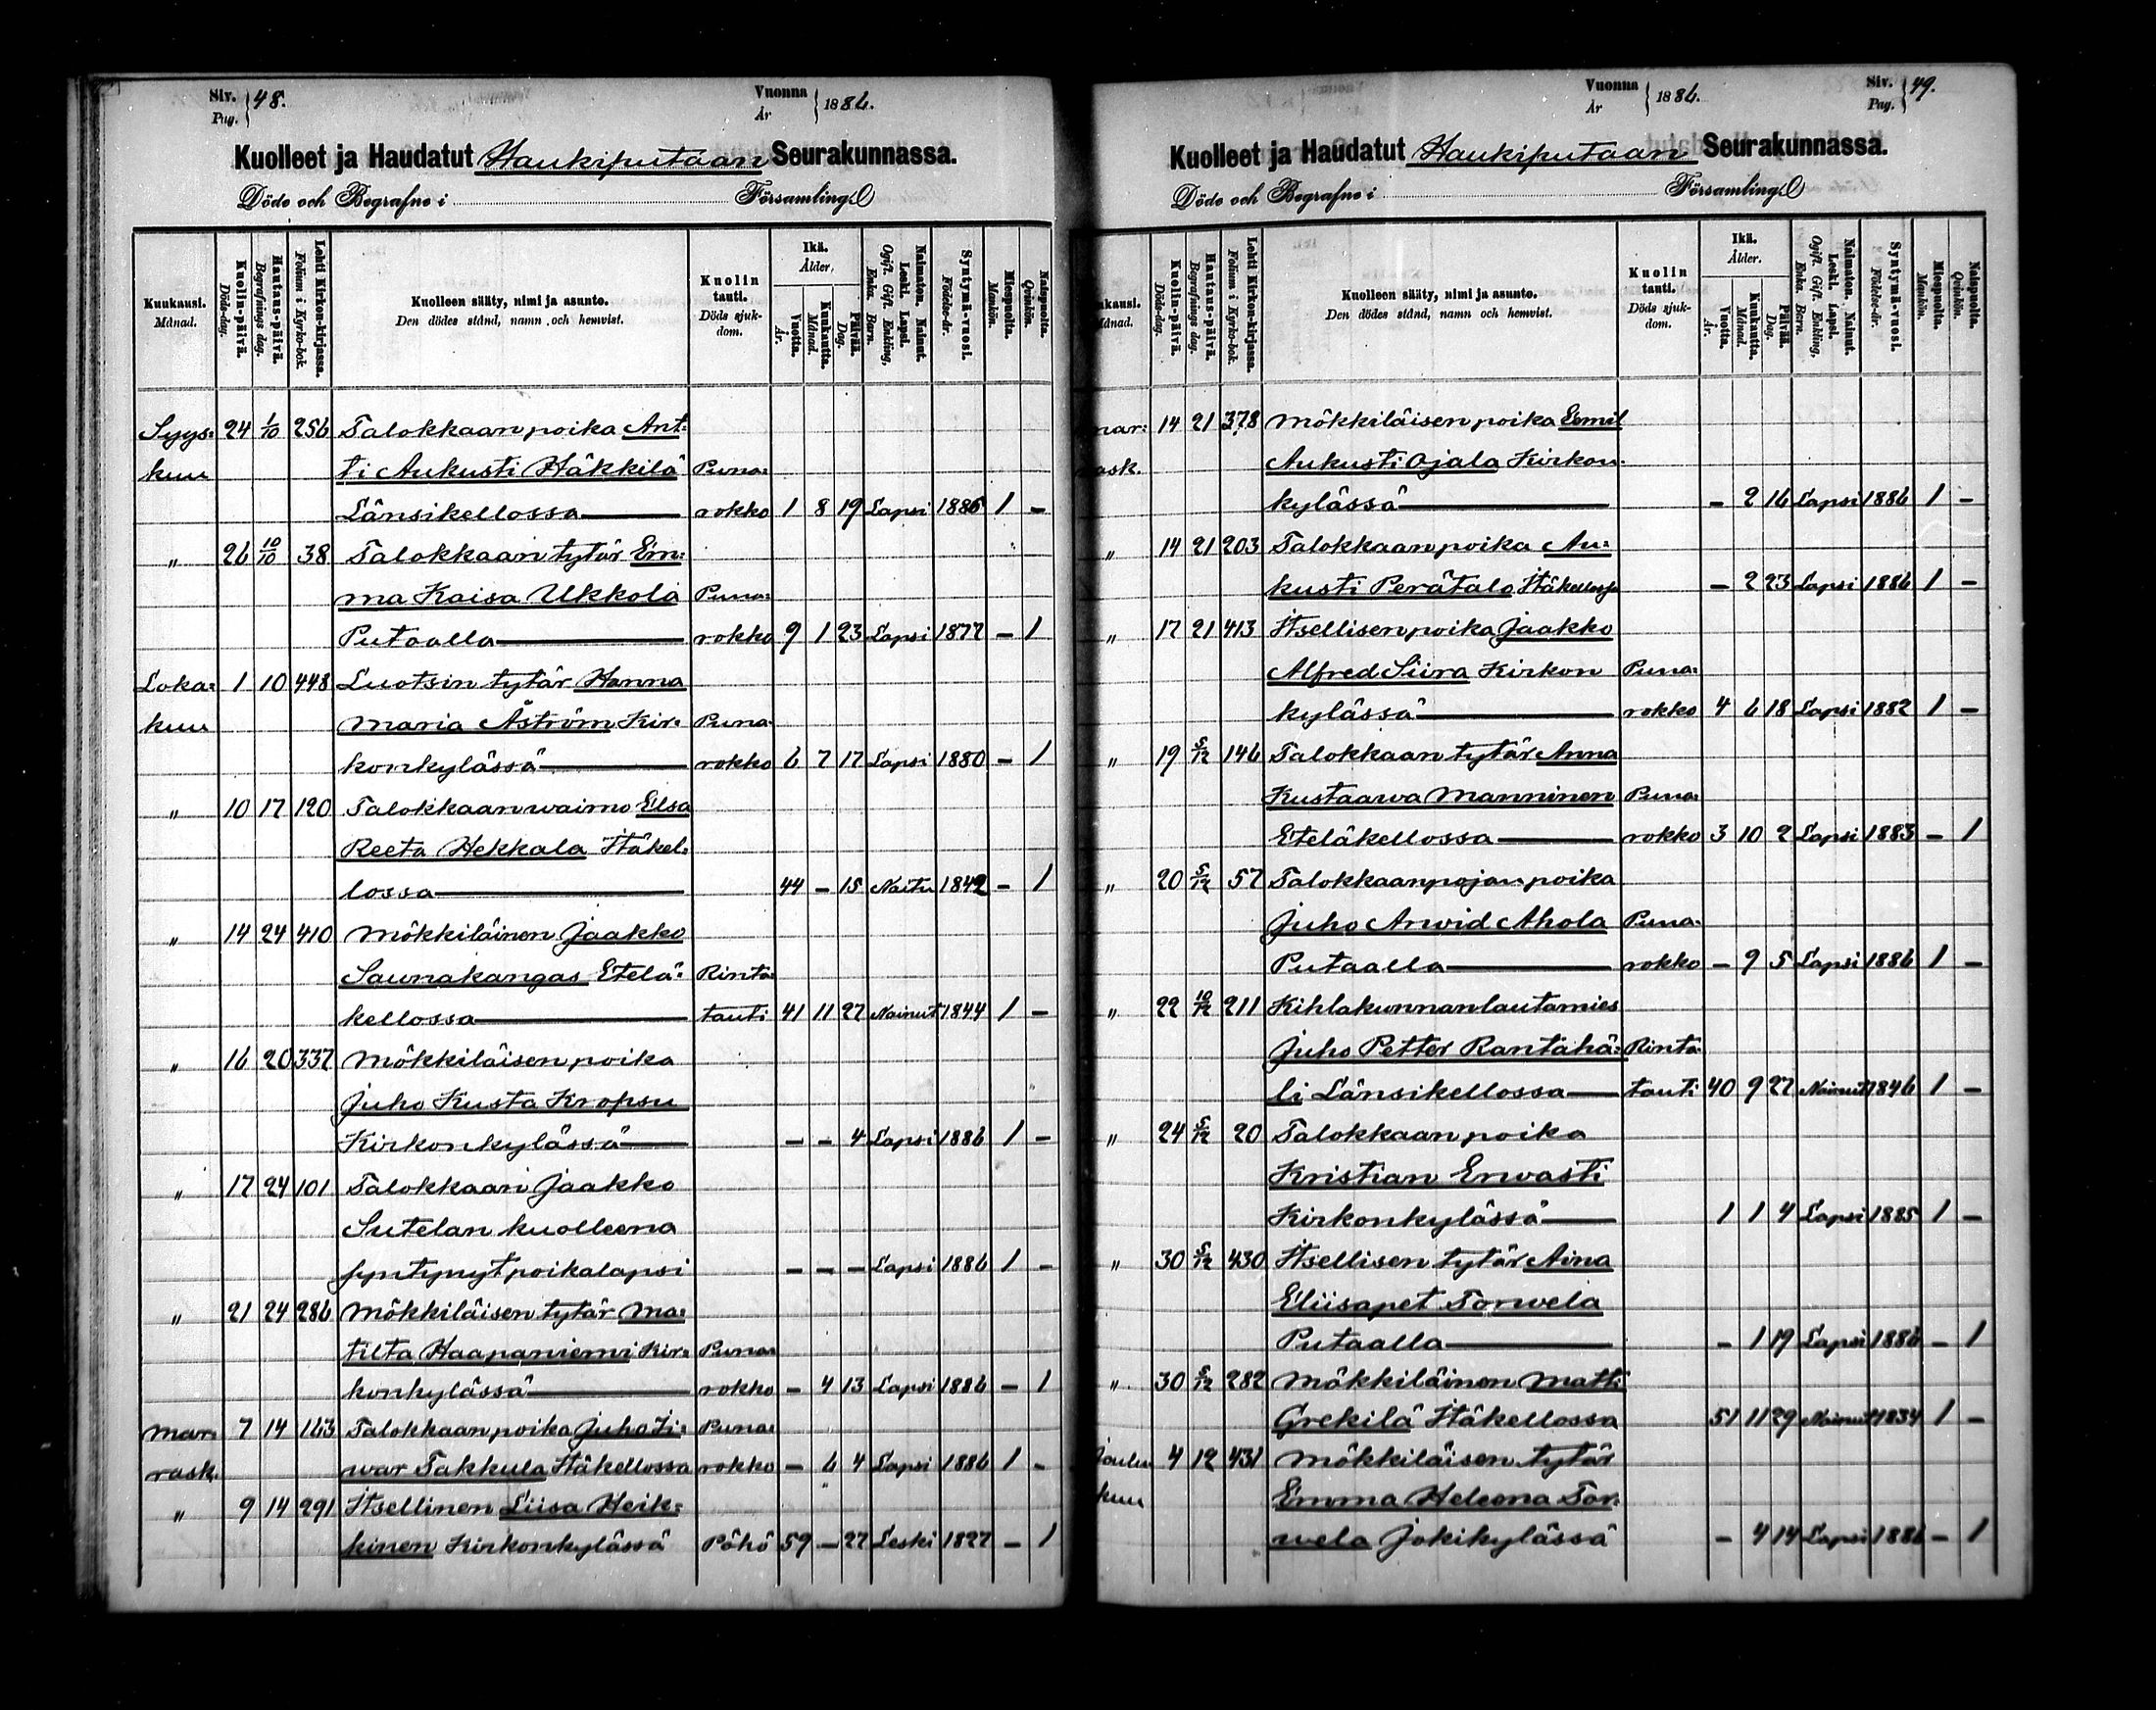 Siv. Pag. 48. Vuonna År 1886.
Kuolleet ja Haudatut Haukiputaan Seurakunnassa.
Döde och Begrafne i Församling
Kuukausi. Månad. Kuolin-päivä. Döds-dag. Hautaus-päivä. Begrafnings dag. Lehti Kirkon-kirjassa. Folium i Kyrko-bok. Kuolleen sääty, nimi ja asunto. Den dödes stånd, namn och hemvist. Kuolin tauti. Döds sjukdom. Ikä. Ålder. Vuotta. År. Kuukautta. Månad. Päivää. Dag. Naimaton. Nainut. Leski. Lapsi. Ogift. Gift. Enkling, Enka. Barn. Syntymä-vuosi. Födelse-år. Miespuolta. Mankön. Naispuolta. Qvinkön.
Syys: 24 1/10 256 Talokkaan poika Ant:
kuu ti Aukusti Häkkilä Puna:
Länsikellossa rokko 1 8 19 Lapsi 1885 1 –
" 26 10/10 38 Talokkaan tytär Em:
ma Kaisa Ukkola Puna:
Putaalla rokko 9 1 23 Lapsi 1877 – 1
Loka: 1 10 448 Luotsin tytär Hanna
kuu Maria Åström Kir: Puna:
konkylässä rokko 6 7 17 Lapsi 1880 – 1
" 10 17 120 Talokkaan waimo Elsa
Reeta Hekkala Itäkel:
lossa 44 – 15 Naitu 1842 – 1
" 14 24 410 Mökkiläinen Jaakko
Saunakangas Etelä: Rinta:
kellossa tauti 41 11 27 Nainut 1844 1 –
" 16 20 337 Mökkiläisen poika
Juho Kusta Kropsu
Kirkonkylässä – – 4 Lapsi 1886 1 –
" 17 24 101 Talokkaan Jaakko
Sutelan kuolleena
syntynyt poikalapsi – – – Lapsi 1886 1 –
" 21 24 286 Mökkiläisen tytär Ma:
tilta Haapaniemi Kir: Puna:
konkylässä rokko – 4 13 Lapsi 1886 – 1
Mar: 7 14 163 Talokkaan poika Juho Ii: Puna:
rask. war Takkula Itäkellossa rokko – 6 4 Lapsi 1886 1 –
" 9 14 291 Itsellinen Liisa Heik:
kinen Kirkonkylässä Pöhö 59 – 27 Leski 1827 – 1
Vuonna År 1886. Siv. Pag. 49.
Kuolleet ja Haudatut Haukiputaan Seurakunnassa.
Döde och Begrafne i Församling
Kuolin-päivä. Döds-dag. Hautaus-päivä. Begrafnings dag. Lehti Kirkon-kirjassa. Folium i Kyrko-bok. Kuolleen sääty, nimi ja asunto. Den dödes stånd, namn och hemvist. Kuolin tauti. Döds sjukdom. Ikä. Ålder. Vuotta. År. Kuukautta. Månad. Päivää. Dag. Naimaton. Nainut. Leski. Lapsi. Ogift. Gift. Enkling, Enka. Barn. Syntymä-vuosi. Födelse-år. Miespuolta. Mankön. Naispuolta. Qvinkön.
mar: 14 21 378 Mökkiläisen poika Eemil
rask. Aukusti Ojala Kirkon:
kylässä – 2 16 Lapsi 1886 1 –
" 14 21 203 Talokkaan poika Au:
kusti Perätalo Itäkellossa – 2 23 Lapsi 1886 1 –
" 17 21 413 Itsellisen poika Jaakko
Alfred Siira Kirkon Puna:
kylässä rokko 4 6 18 Lapsi 1882 1 –
" 19 5/12 146 Talokkaan tytär Anna
Kustaawa Manninen Puna:
Eteläkellossa rokko 3 10 2 Lapsi 1883 – 1
" 20 5/12 57 Talokkaanpojan poika
Juho Arwid Ahola Puna:
Putaalla rokko – 9 5 Lapsi 1886 1 –
" 22 10/12 211 Kihlakunnanlautamies
Juho Petter Rantahä: Rinta:
li Länsikellossa tauti 40 9 22 Nainut 1846 1 –
" 24 5/12 20 Talokkaan poika
Kristian Erwasti
Kirkonkylässä 1 1 4 Lapsi 1885 1 –
" 30 5/12 430 Itsellisen tytär Aina
Eliisapet Torwela
Putaalla – 1 19 Lapsi 1886 – 1
" 30 5/12 282 Mökkiläinen Matti
Grekilä Itäkellossa 51 11 29 Nainut 1834 1 –
Joulu 4 12 431 Mökkiläisen tytär
kuu Emma Heleena Tor:
wela Jokikylässä – 4 14 Lapsi 1886 – 1